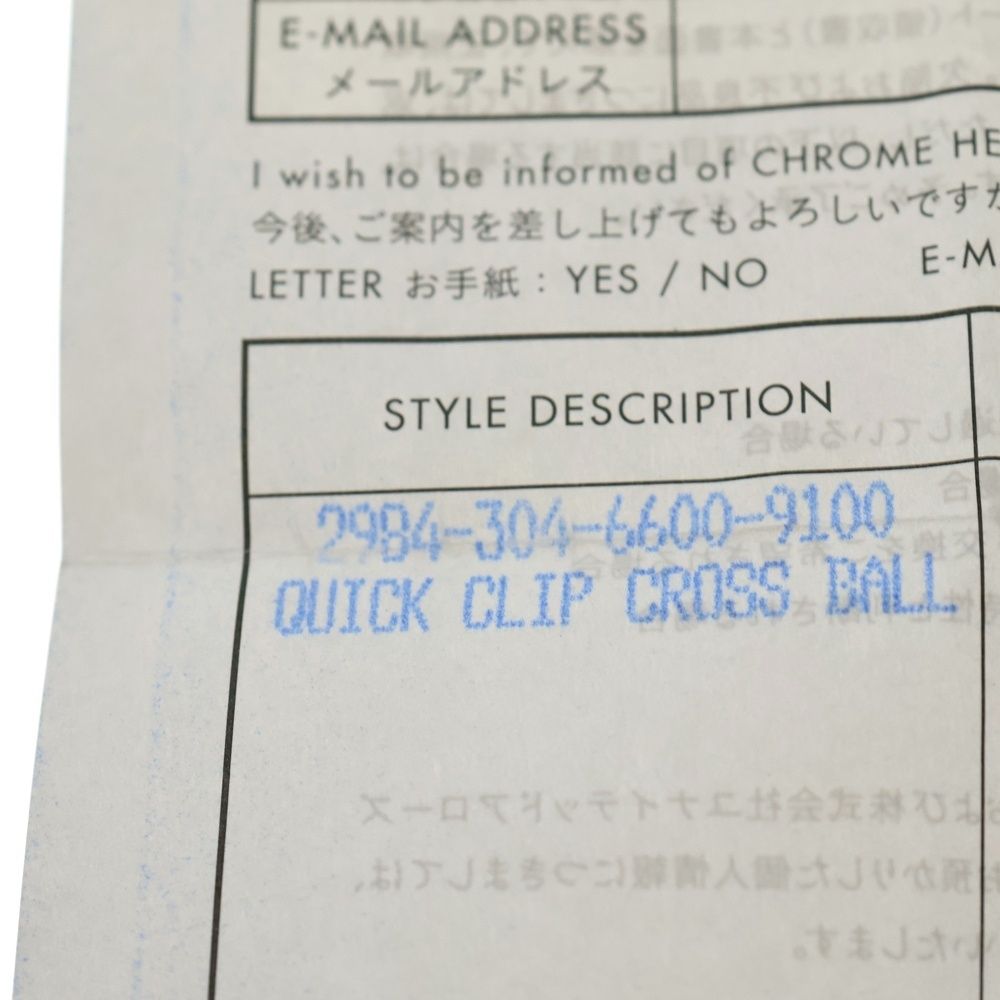 E-MAIL ADDRESS
メールアドレス
I wish to be informed of CHROME HE
今後、ご案内を差し上げてもよろしいですか
LETTER お手紙 : YES / NO E-M
STYLE DESCRIPTION
2984-304-6600-9100
QUICK CLIP CROSS BALL